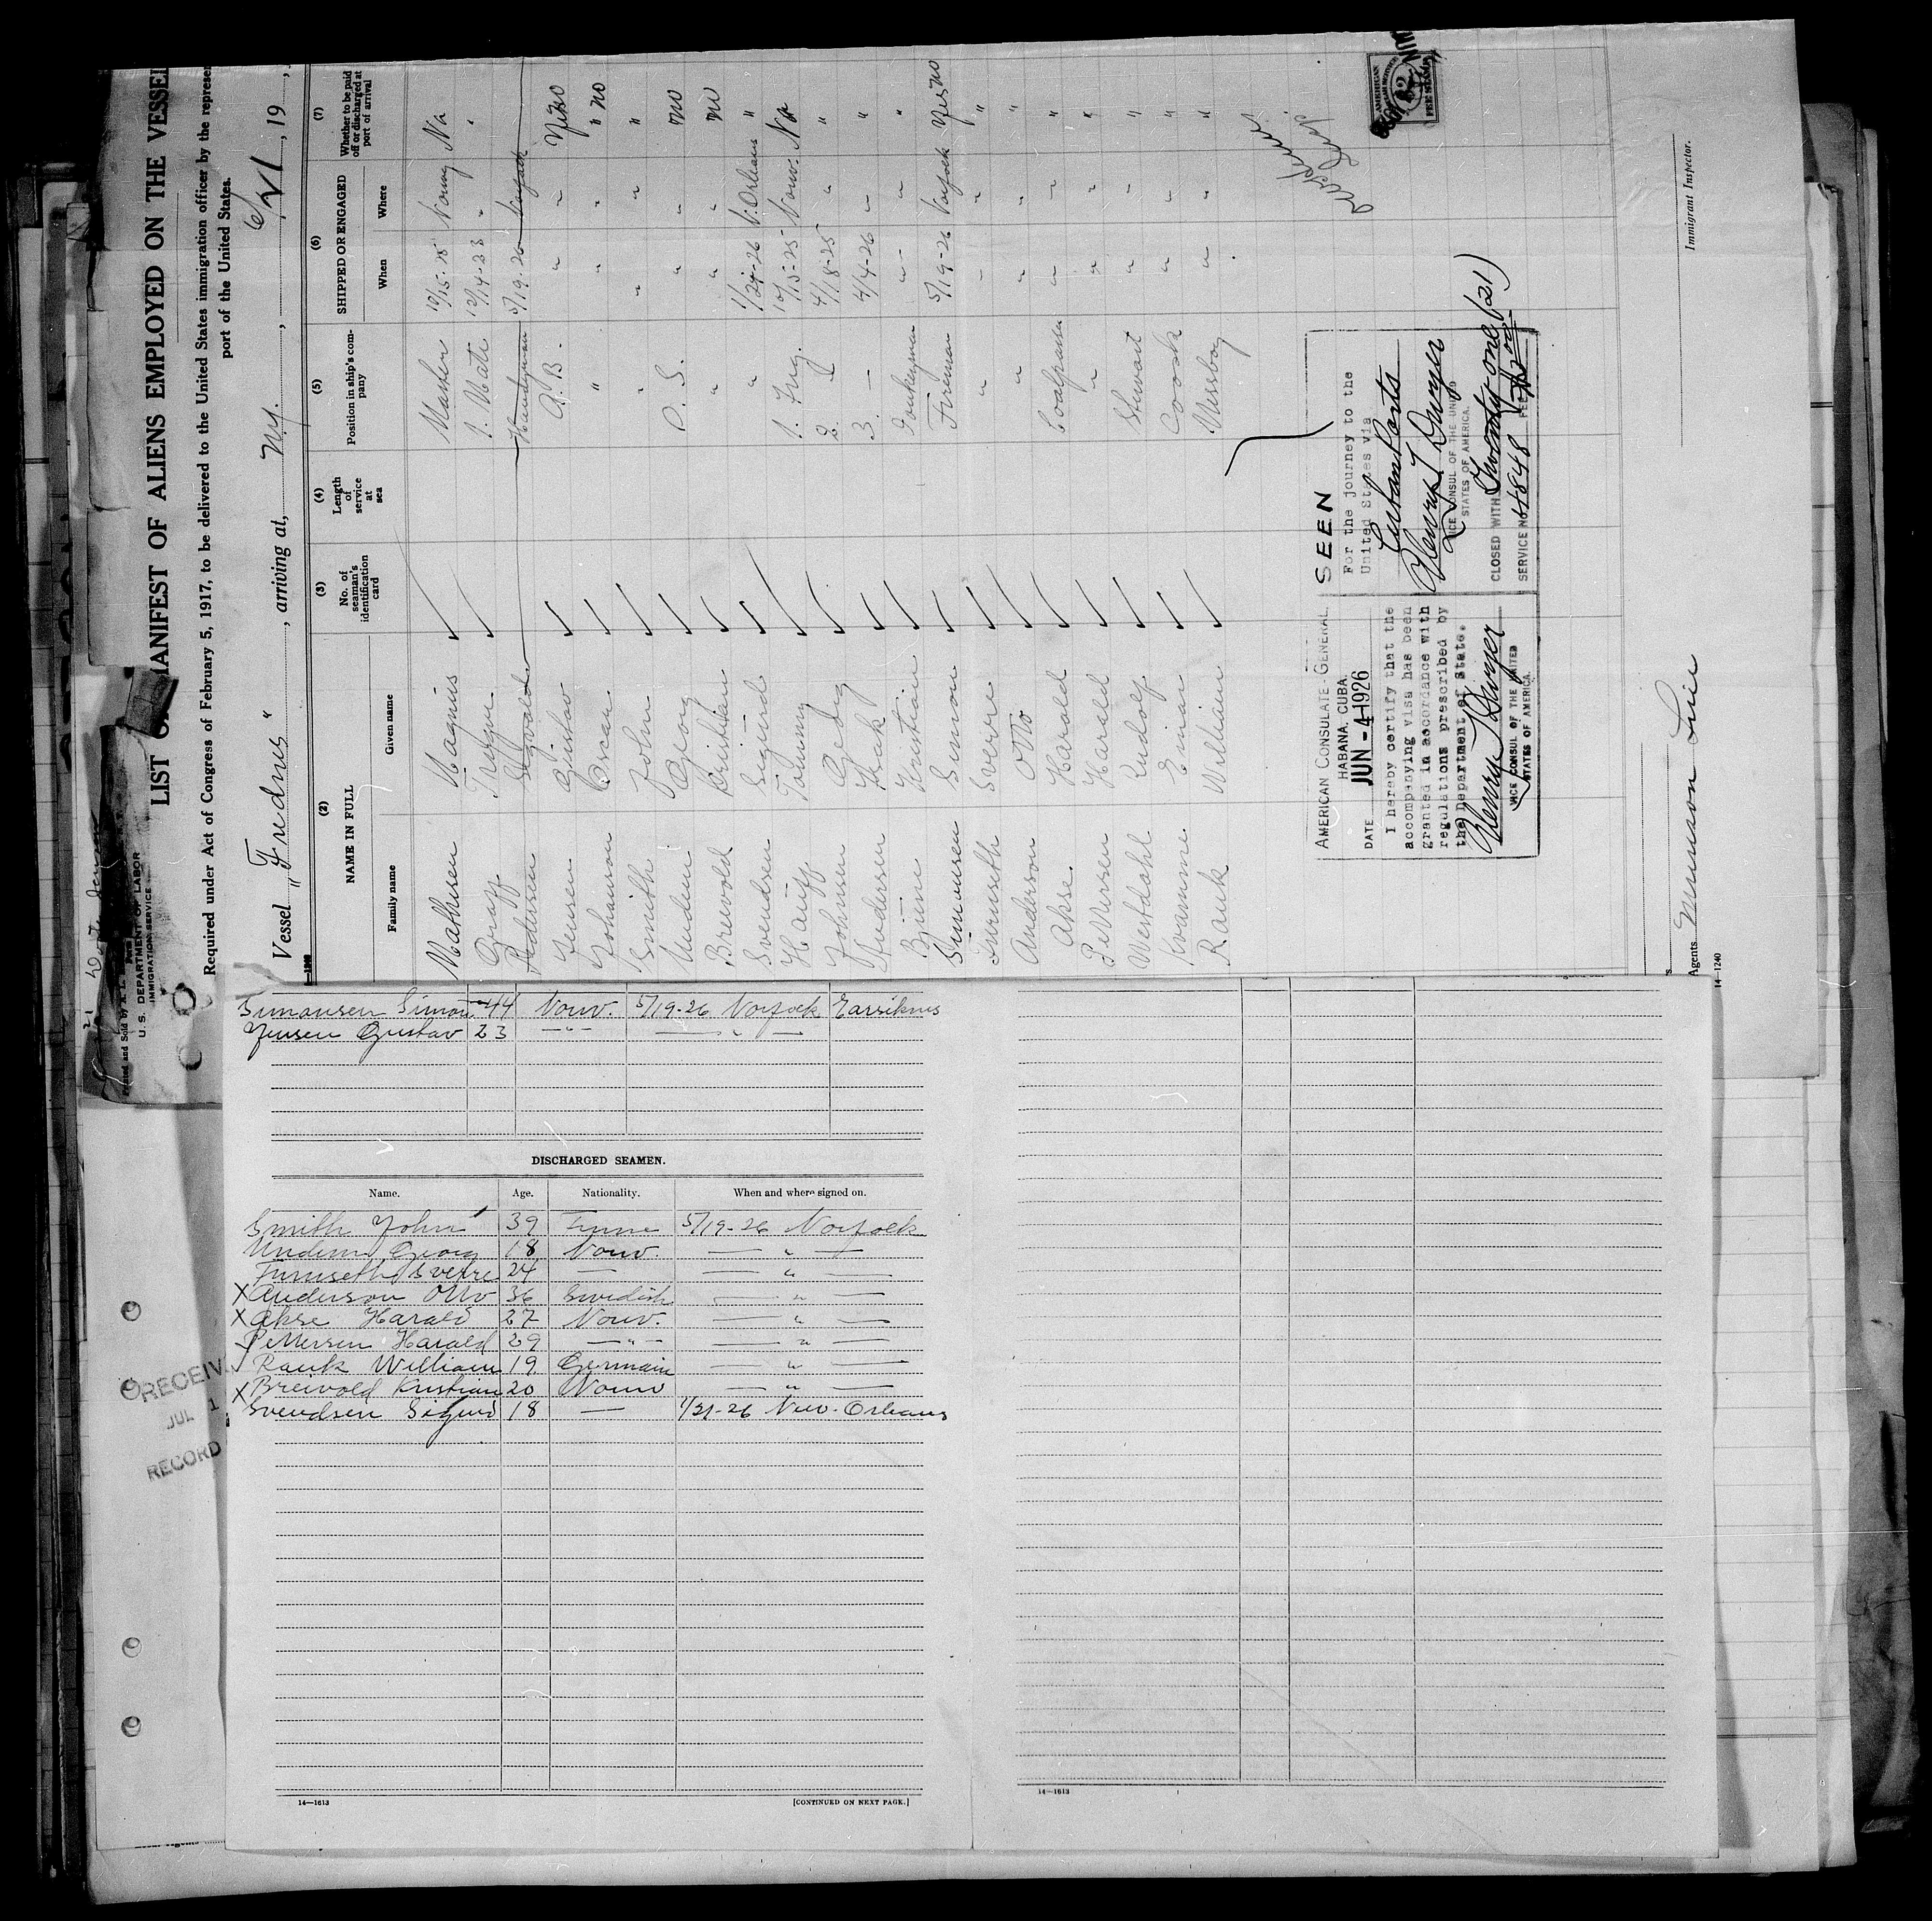 LIST OR MANIFEST OF ALIENS EMPLOYED ON THE VESSEL
Required under Act of Congress of February 5, 1917, to be delivered to the United States immigration officer by the represen
port of the United States.
U. S. DEPARTMENT OF LABOR
IMMIGRATION SERVICE
Vessel „Frednes", arriving at, N.Y. , 6/VI , 19
(2) (3) (4) (5) (6) (7)
NAME IN FULL No. of seaman's identification card Length of service at sea Position in ship's company SHIPPED OR ENGAGED Whether to be paid off or discharged at port of arrival
Family name Given name When Where
Mathisen Magnus Master 10/15-25 Norway No
Graff Trygve 1. Mate 12/14-23 " "
Pedersen Sigvald 5/19-26 Norfolk
Jensen Gustav A.B. " " Yes no
Johanson Oscar " " " " no
Smith John " " " "
Undem Georg O.S. " " no
Breivold Kristian " " " no
Svendsen Sigurd " 1/24-26 N. Orleans "
Hauff Tommy 1. Ing. 10/15-25 Norw. No
Johnsen Gedig 2. 4/18-25 " "
Andersen 3. — 4/4-26 " "
Donkeyman " " "
Simonsen Simon Fireman 5/19-26 Norfolk Yes no
Furuseth Sverre " " " "
Anderson Otto " " " "
Akse. Harald Coalpasser " " "
Pettersen Harald " " " "
Westdahl Rudolf Stewart " " "
Kvamme Einar Coock " " "
Rauk William Messboy " " "
AMERICAN CONSULATE-GENERAL,
HABANA, CUBA.
DATE JUN - 4 1926
I hereby certify that the
accompanying visa has been
granted in accordance with
regulations prescribed by
the Department of State.
Henry T Dwyer
VICE CONSUL OF THE UNITED
STATES OF AMERICA.
SEEN
For the journey to the
United States via
Cuban Ports
Henry T Dwyer
VICE CONSUL OF THE UNITED
STATES OF AMERICA.
CLOSED WITH Twenty one (21)
SERVICE NO. 4848 FEE $2.00
AMERICAN
FEE STAMP
Agents Munson Line
Immigrant Inspector.
14—1240
Simonsen Simon 44 Norw. 5/19-26 Norfolk
Jensen Gustav 23 —"— — " —
DISCHARGED SEAMEN.
Name. Age. Nationality. When and where signed on.
Smith John 39 Finne 5/19-26 Norfolk
Undem Georg 18 Norw. — " —
Furuseth Sverre 24 — — " —
X Anderson Otto 36 Swedish — " —
X Akse Harald 27 Norw. — " —
Pettersen Harald 29 —"— — " —
Rauk William 19 Germain — " —
X Breivold Kristian 20 Norw — " —
Svendsen Sigurd 18 — 1/21-26 New. Orleans
RECEIV
JUL 1
RECORD
14—1613
[CONTINUED ON NEXT PAGE.]
14—1613